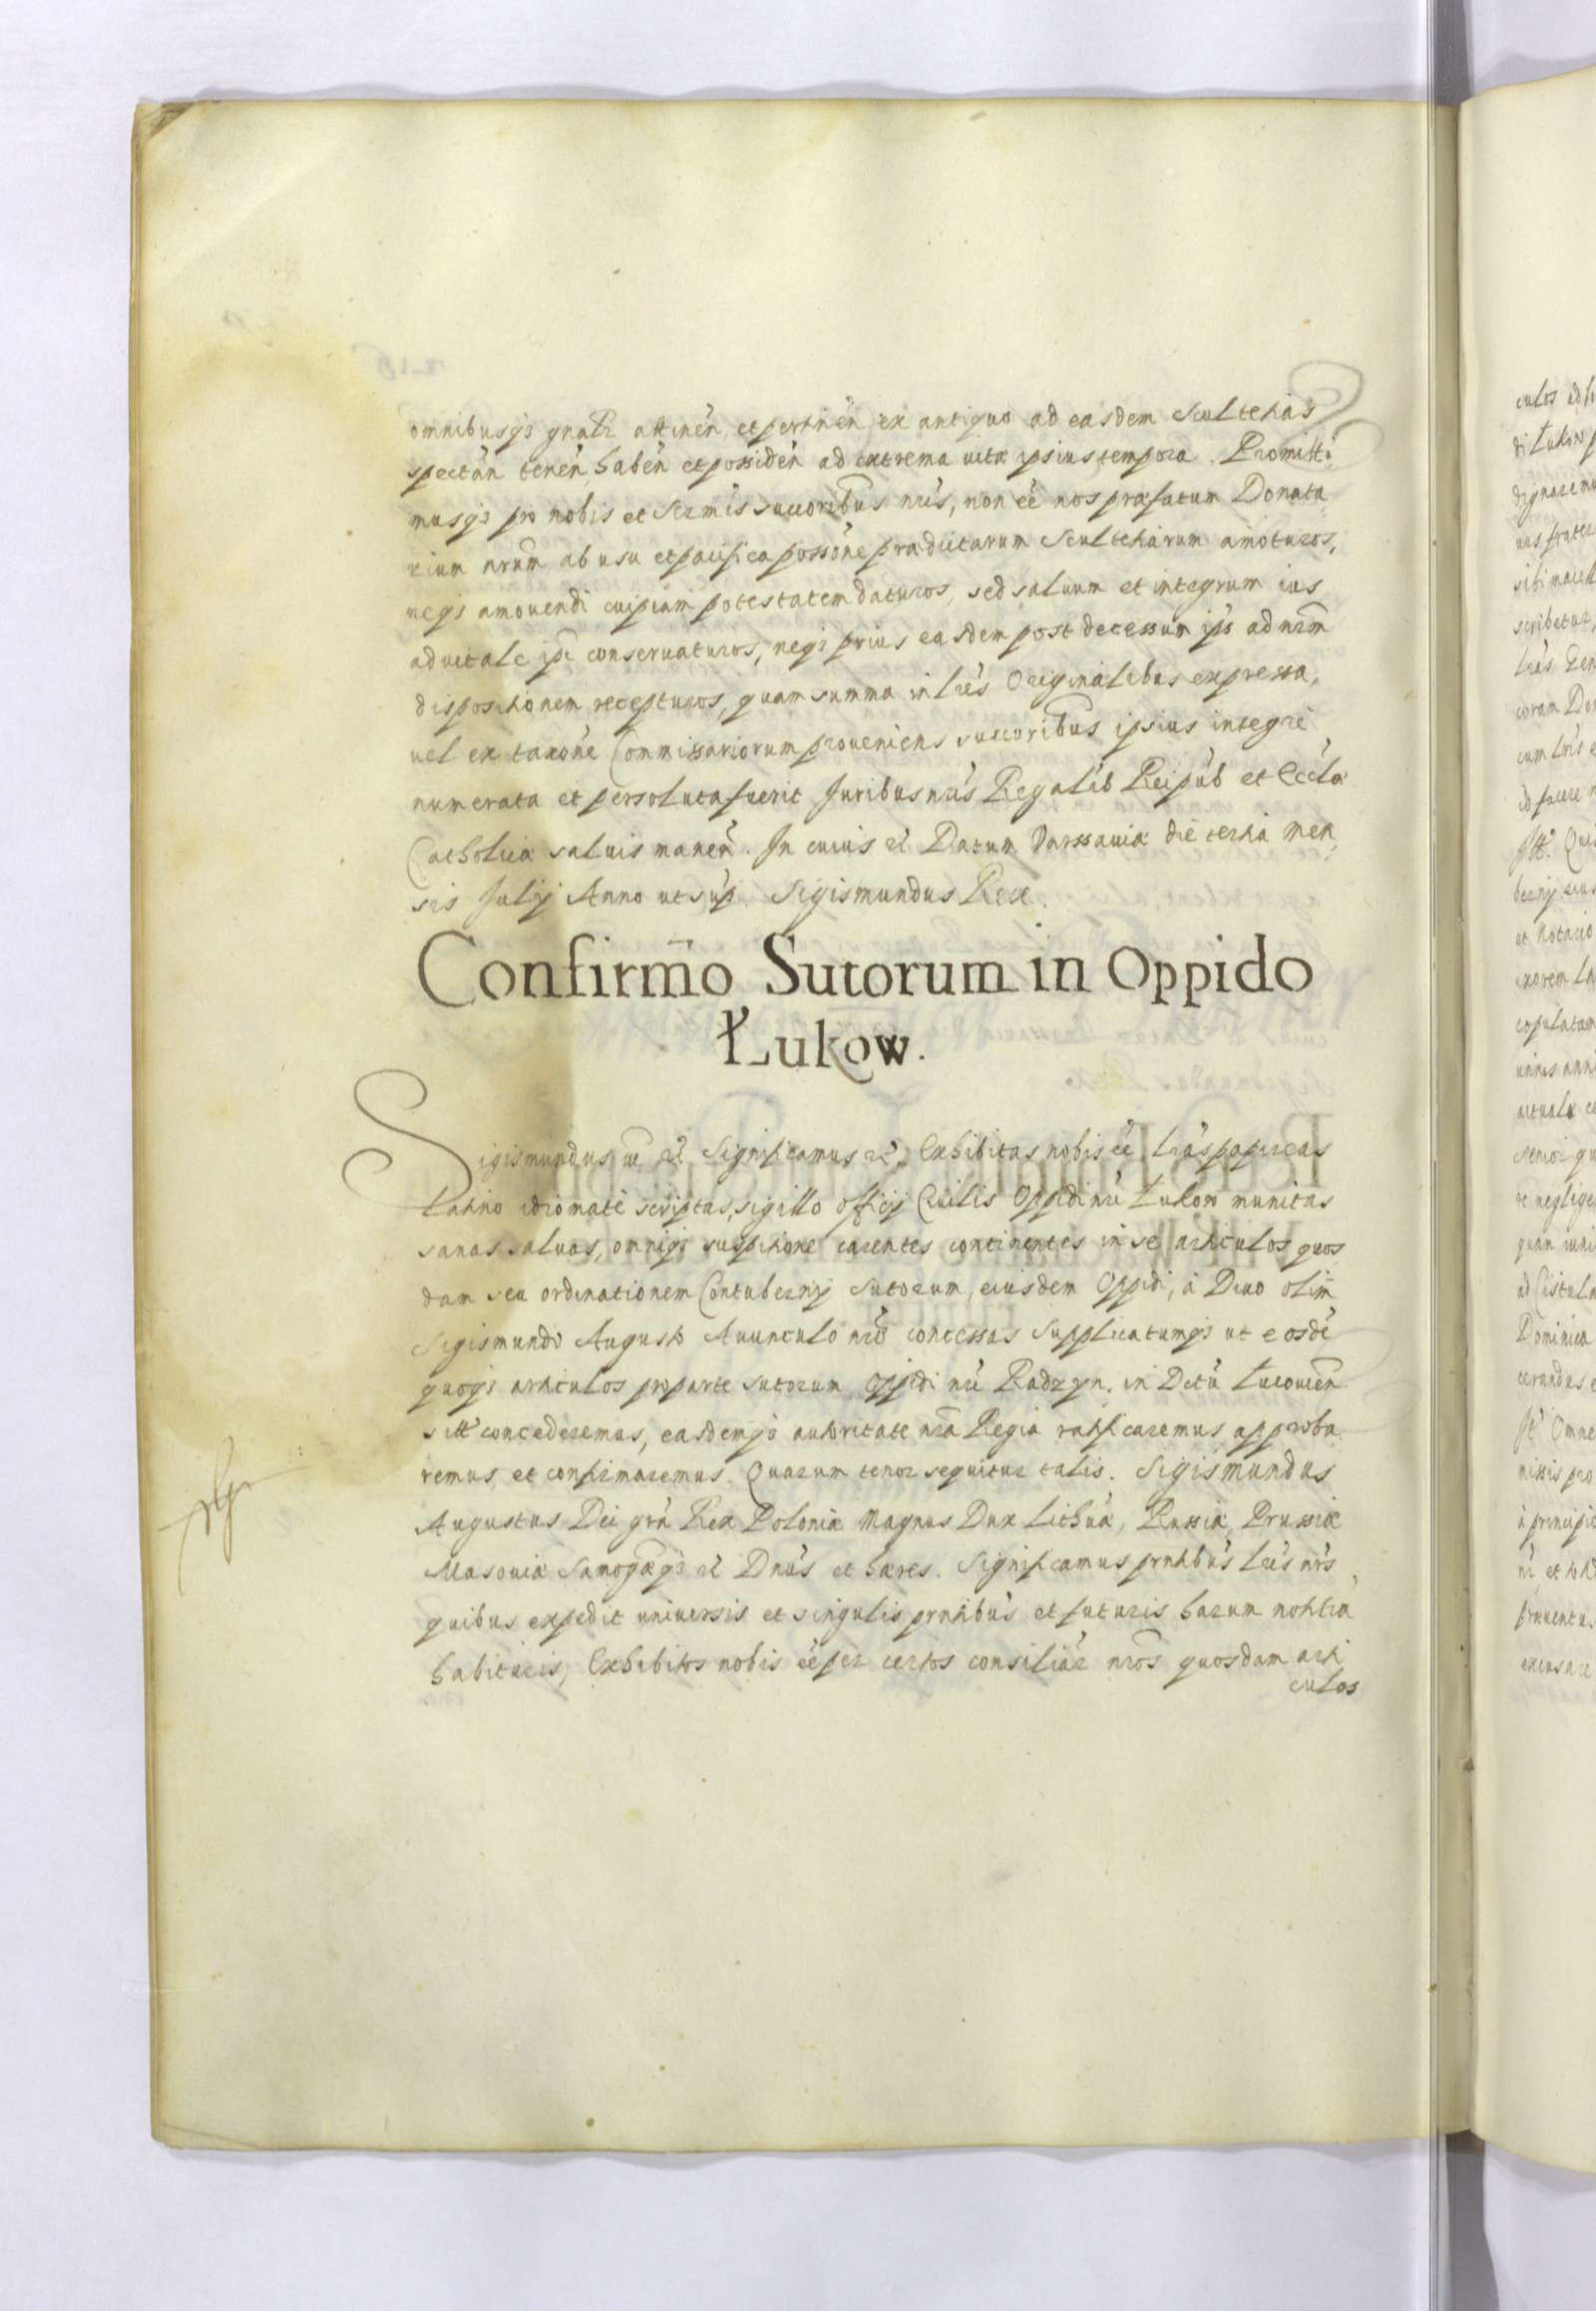 omnibusqз gnalr attinen̄ et pertinen̄ ex antiquo ad easdem Scultetias
spectan̄ tenen̄ haben̄ et possiden̄ ad extrema vitæ ipsius tempora. Promitti
musqз pro nobis et Sermis succoribus nris, non eē nos præfatum Donata
rium nrum ab usu et pacifica possōne prædictarum Scultetiarum amoturos,
neqз amovendi cuipiam potestatem daturos, sed salvum et integrum ius
aduitale ipē conservaturos, neqз prius easdem post decessum ips ad nrām
dispositionem recepturos, quam summa in lrīs Originalibus expressa,
uel ex taxōne Commissariorum proveniens succoribus ipsius integrè
numerata et persoluta fuerit Juribus nrīs Regalib Reipub et Eccla
Catholicæ saluis manen̄. In cuius er̄ Datum Varssaviæ die tertia Men
sis Julij Anno ut sup. Sigismundus Rex.
Confirm̄o Sutorum in Oppido
Łukow.
Sigismundus er̄ Significamus er̄. Exhibitas nobis eē lrās papireas
Latino idiomate scriptas, sigillo officij Civilis Oppidi nrī Łukow munitas
sanas salvas, omniqз suspitione carentes continentes in se articulos quos
dam seu ordinationem Contubernij Sutorum, eiusdem Oppidi, à Divo olim
Sigismundo Augusto Avunculo nrō concessas Supplicatumqз ut eosdē
quoqз articulos pro parte sutorum oppidi nrī Radzyn. in Dctū Lucovien̄
sitt concederemus, easdemqз autoritate nrā Regia ratificaremus approba
remus et confirmaremus. Quarum tenor sequitur talis. Sigismundus
Augustus Dei grā Rex Poloniæ Magnus Dux Lithuā, Russiæ, Prussiæ
Masoviæ Samogæqз er̄ Dnūs et hæres. Significamus prntibus lrīs nrīs
quibus expedit universis et singulis prntibus et futuris harum notitiā
habituris, Exhibitos nobis eē per certos consiliār nrōs quosdam arti
culos